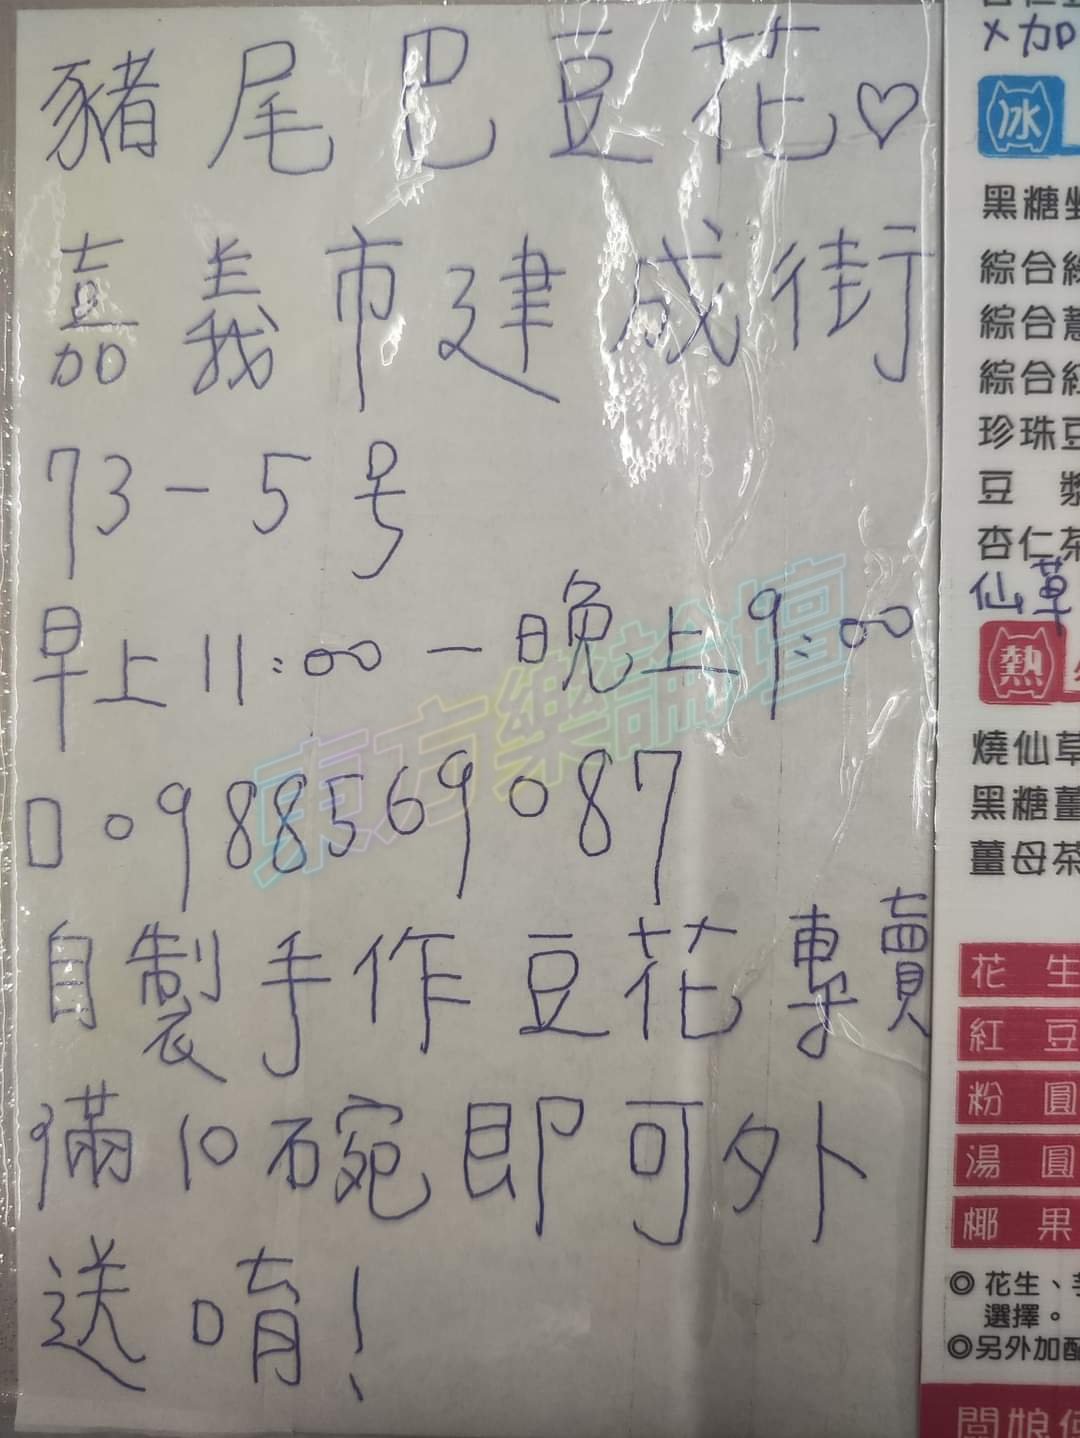 豬尾巴豆花♡
嘉義市建成街
73-5号
早上11:00-晚上9:00
口0988569087
自製手作豆花專賣
滿10碗即可外
送唷!
東方樂論壇
x加
冰
黑糖
綜合
綜合
綜合紅
珍珠豆
豆 漿
杏仁茶
仙草
熱
燒仙草
黑糖薑
薑母茶
花生
紅豆
粉圓
湯圓
椰果
◎花生、
選擇。
◎另外加配
闆娘